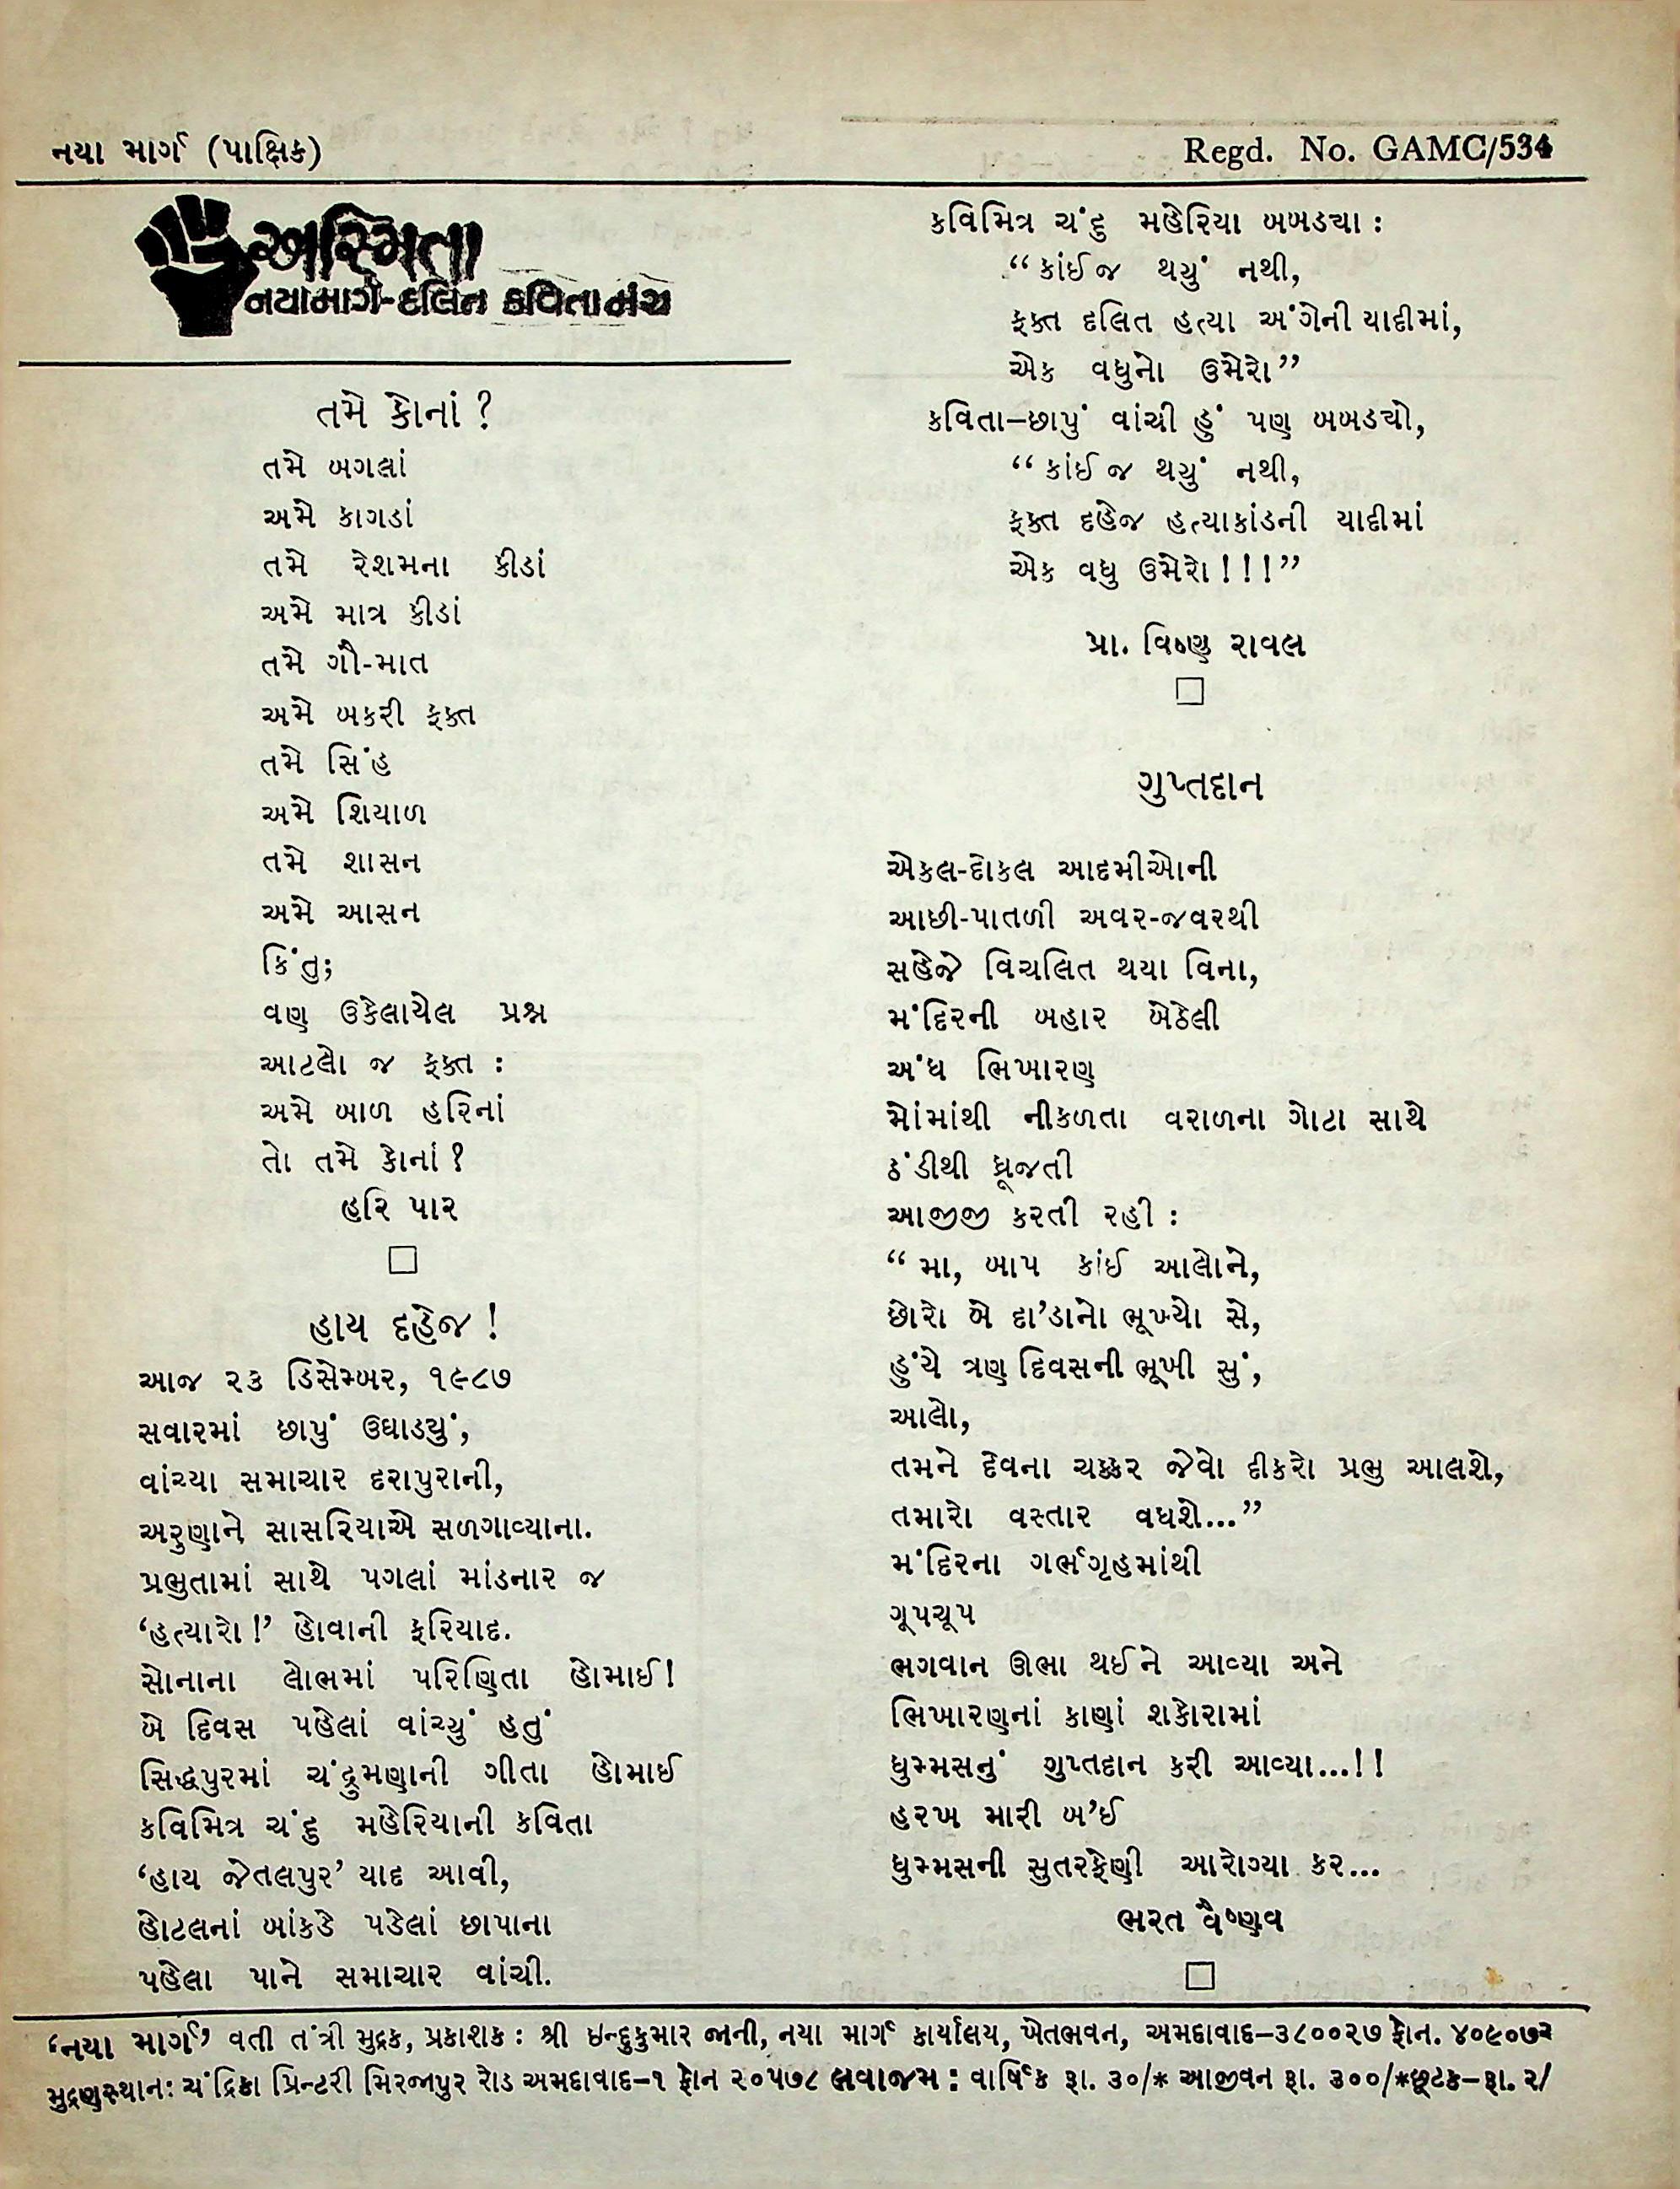 નયા માર્ગ (પાક્ષિક)
Regd. No. GAMC/534
અસ્મિતા
નયામાર્ગ-દલિત કવિતામંચ
તમે કોનાં ?
તમે બગલાં
અમે કાગડાં
તમે રેશમના કીડાં
અમે માત્ર કીડાં
તમે ગૌ-માત
અમે બકરી ફક્ત
તમે સિંહ
અમે શિયાળ
તમે શાસન
અમે આસન
કિંતુ;
વણ ઉકેલાયેલ પ્રશ્ન
આટલો જ ફક્ત :
અમે બાળ હરિનાં
તો તમે કોનાં ?
હરિ પાર
હાય દહેજ !
આજ ૨૩ ડિસેમ્બર, ૧૯૮૭
સવારમાં છાપું ઉઘાડ્યું,
વાંચ્યા સમાચાર દરાપુરાની,
અરુણાને સાસરિયાએ સળગાવ્યાના.
પ્રભુતામાં સાથે પગલાં માંડનાર જ
‘હત્યારો !’ હોવાની ફરિયાદ.
સોનાના લોભમાં પરિણિતા હોમાઈ !
બે દિવસ પહેલાં વાંચ્યું હતું
સિદ્ધપુરમાં ચંદ્રુમણાની ગીતા હોમાઈ
કવિમિત્ર ચંદુ મહેરિયાની કવિતા
‘હાય જેતલપુર’ યાદ આવી,
હોટલનાં બાંકડે પડેલાં છાપાના
પહેલા પાને સમાચાર વાંચી.
કવિમિત્ર ચંદુ મહેરિયા બબડ્યા :
“ કાંઈ જ થયું નથી,
ફક્ત દલિત હત્યા અંગેની યાદીમાં,
એક વધુનો ઉમેરો”
કવિતા–છાપું વાંચી હું પણ બબડ્યો,
“ કાંઈ જ થયું નથી,
ફક્ત દહેજ હત્યાકાંડની યાદીમાં
એક વધુ ઉમેરો ! ! ! ”
પ્રા. વિષ્ણુ રાવલ
ગુપ્તદાન
એકલ-દોકલ આદમીઓની
આછી-પાતળી અવર-જવરથી
સહેજે વિચલિત થયા વિના,
મંદિરની બહાર બેઠેલી
અંધ ભિખારણ
મોંમાંથી નીકળતા વરાળના ગોટા સાથે
ઠંડીથી ધ્રૂજતી
આજીજી કરતી રહી :
“ મા, બાપ કાંઈ આલોને,
છોરો બે દા’ડાનો ભૂખ્યો સે,
હુંયે ત્રણ દિવસની ભૂખી સું,
આલો,
તમને દેવના ચક્કર જેવો દીકરો પ્રભુ આલશે,
તમારો વસ્તાર વધશે...”
મંદિરના ગર્ભગૃહમાંથી
ગૂપચૂપ
ભગવાન ઊભા થઈને આવ્યા અને
ભિખારણનાં કાણાં શકોરામાં
ધુમ્મસનું ગુપ્તદાન કરી આવ્યા...! !
હરખ મારી બ’ઈ
ધુમ્મસની સુતરફેણી આરોગ્યા કર...
ભરત વૈષ્ણવ
‘નયા માર્ગ’ વતી તંત્રી મુદ્રક, પ્રકાશક : શ્રી ઇન્દુકુમાર જાની, નયા માર્ગ કાર્યાલય, ખેતભવન, અમદાવાદ–૩૮૦૦૨૭ ફોન. ૪૦૯૦૭૨
મુદ્રણસ્થાન: ચંદ્રિકા પ્રિન્ટરી મિરજાપુર રોડ અમદાવાદ–૧ ફોન ૨૦૫૭૮ લવાજમ : વાર્ષિક રૂા. ૩૦/* આજીવન રૂા. ૩૦૦/*છૂટક–રૂા. ૨/